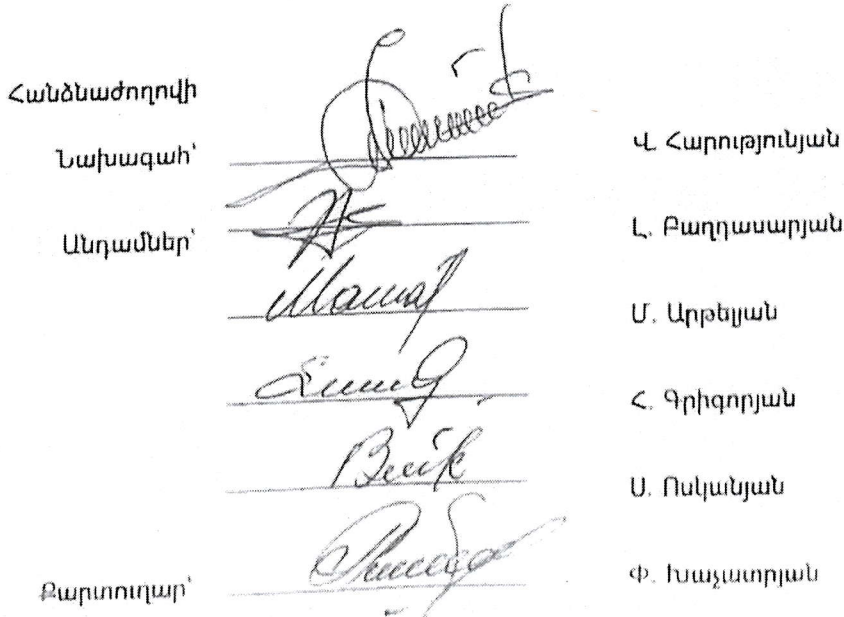 Հանձնաժողովի
Նախագահ՝ Վ. Հարությունյան
Անդամներ՝ Լ. Բաղդասարյան
Մ. Արթելյան
Հ. Գրիգորյան
Ս. Ոսկանյան
Քարտուղար՝ Փ. Խաչատրյան